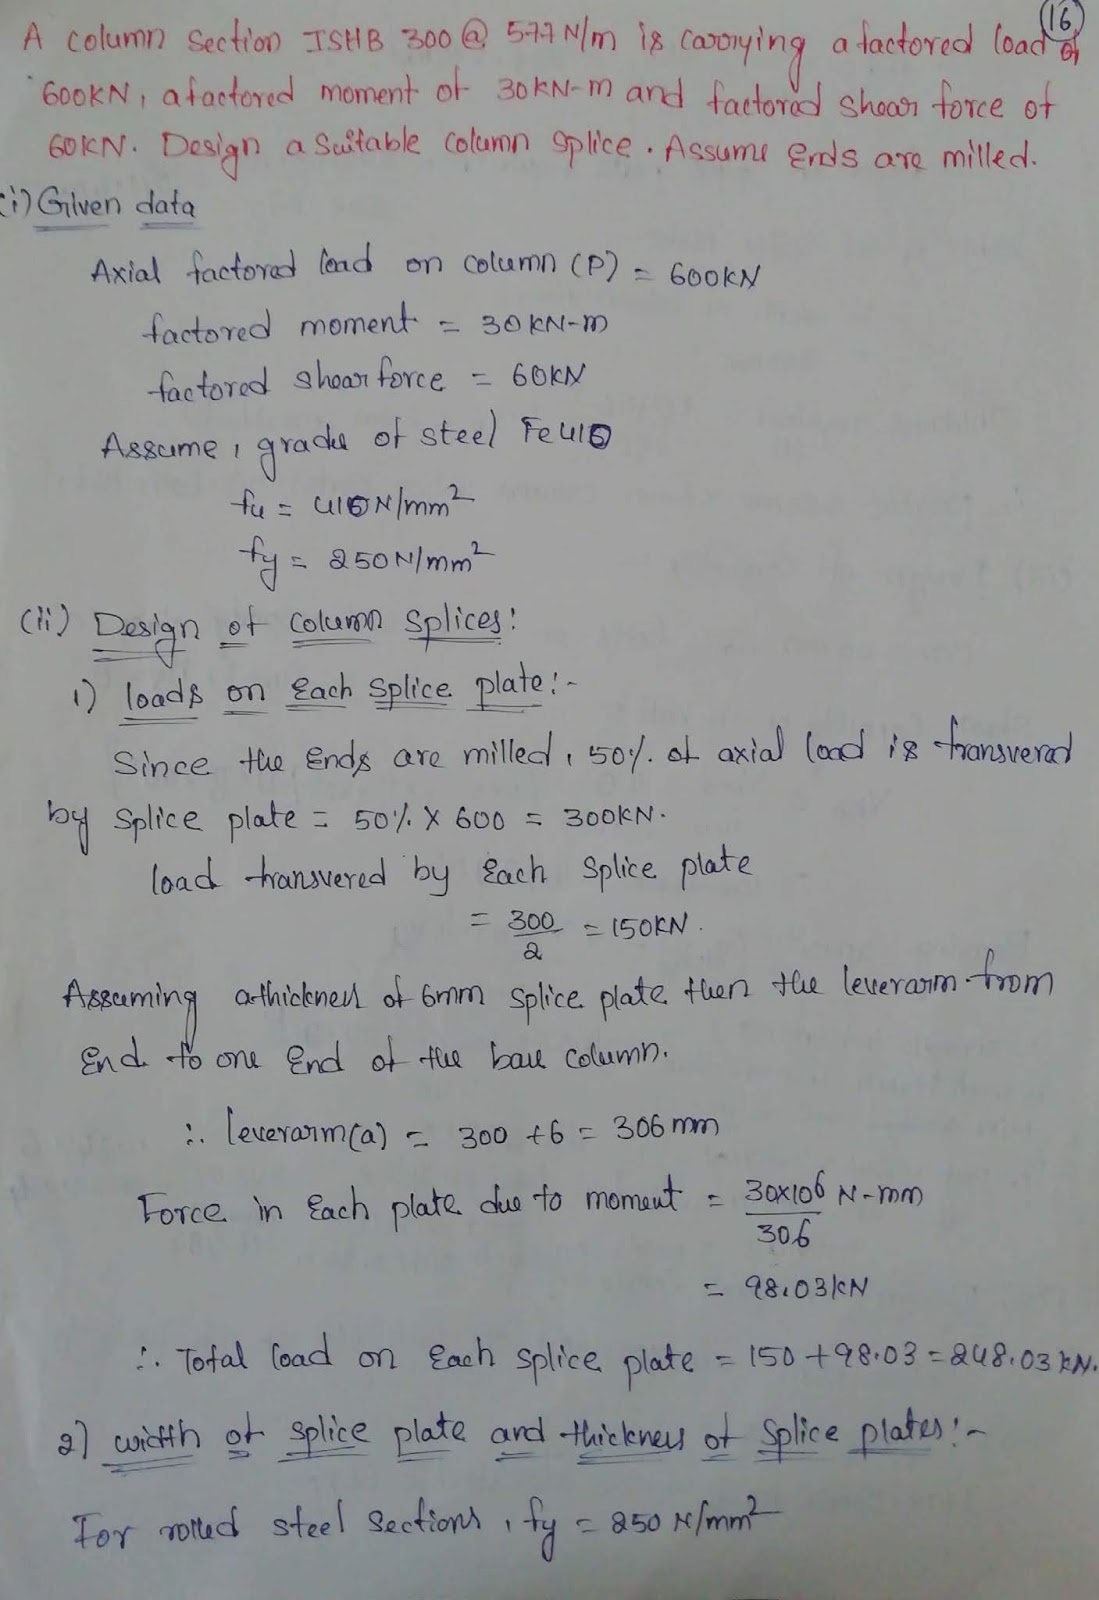 (16)
A column section ISHB 300 @ 577 N/m is carrying a factored load of
600KN, a factored moment of 30KN-m and factored shear force of
60KN. Design a suitable column splice. Assume Ends are milled.
(i) Given data
Axial factored load on column (P) = 600KN
factored moment = 30KN-m
factored shear force = 60KN
Assume, grade of steel Fe410
fu = 410N/mm²
fy = 250N/mm²
(ii) Design of column splices:
1) loads on Each splice plate:-
Since the Ends are milled, 50%. of axial load is transvered
by splice plate = 50%. X 600 = 300KN.
load transvered by Each splice plate
= 300/2 = 150KN.
Assuming a thickness of 6mm splice plate then the leverarm from
End to one End of the base column.
∴ leverarm(a) = 300 + 6 = 306mm
Force in Each plate due to moment = 30x10⁶ N-mm / 306
= 98.03KN
∴ Total load on Each splice plate = 150 + 98.03 = 248.03 KN.
2) width of splice plate and thickness of splice plates:-
For rolled steel sections, fy = 250 N/mm²